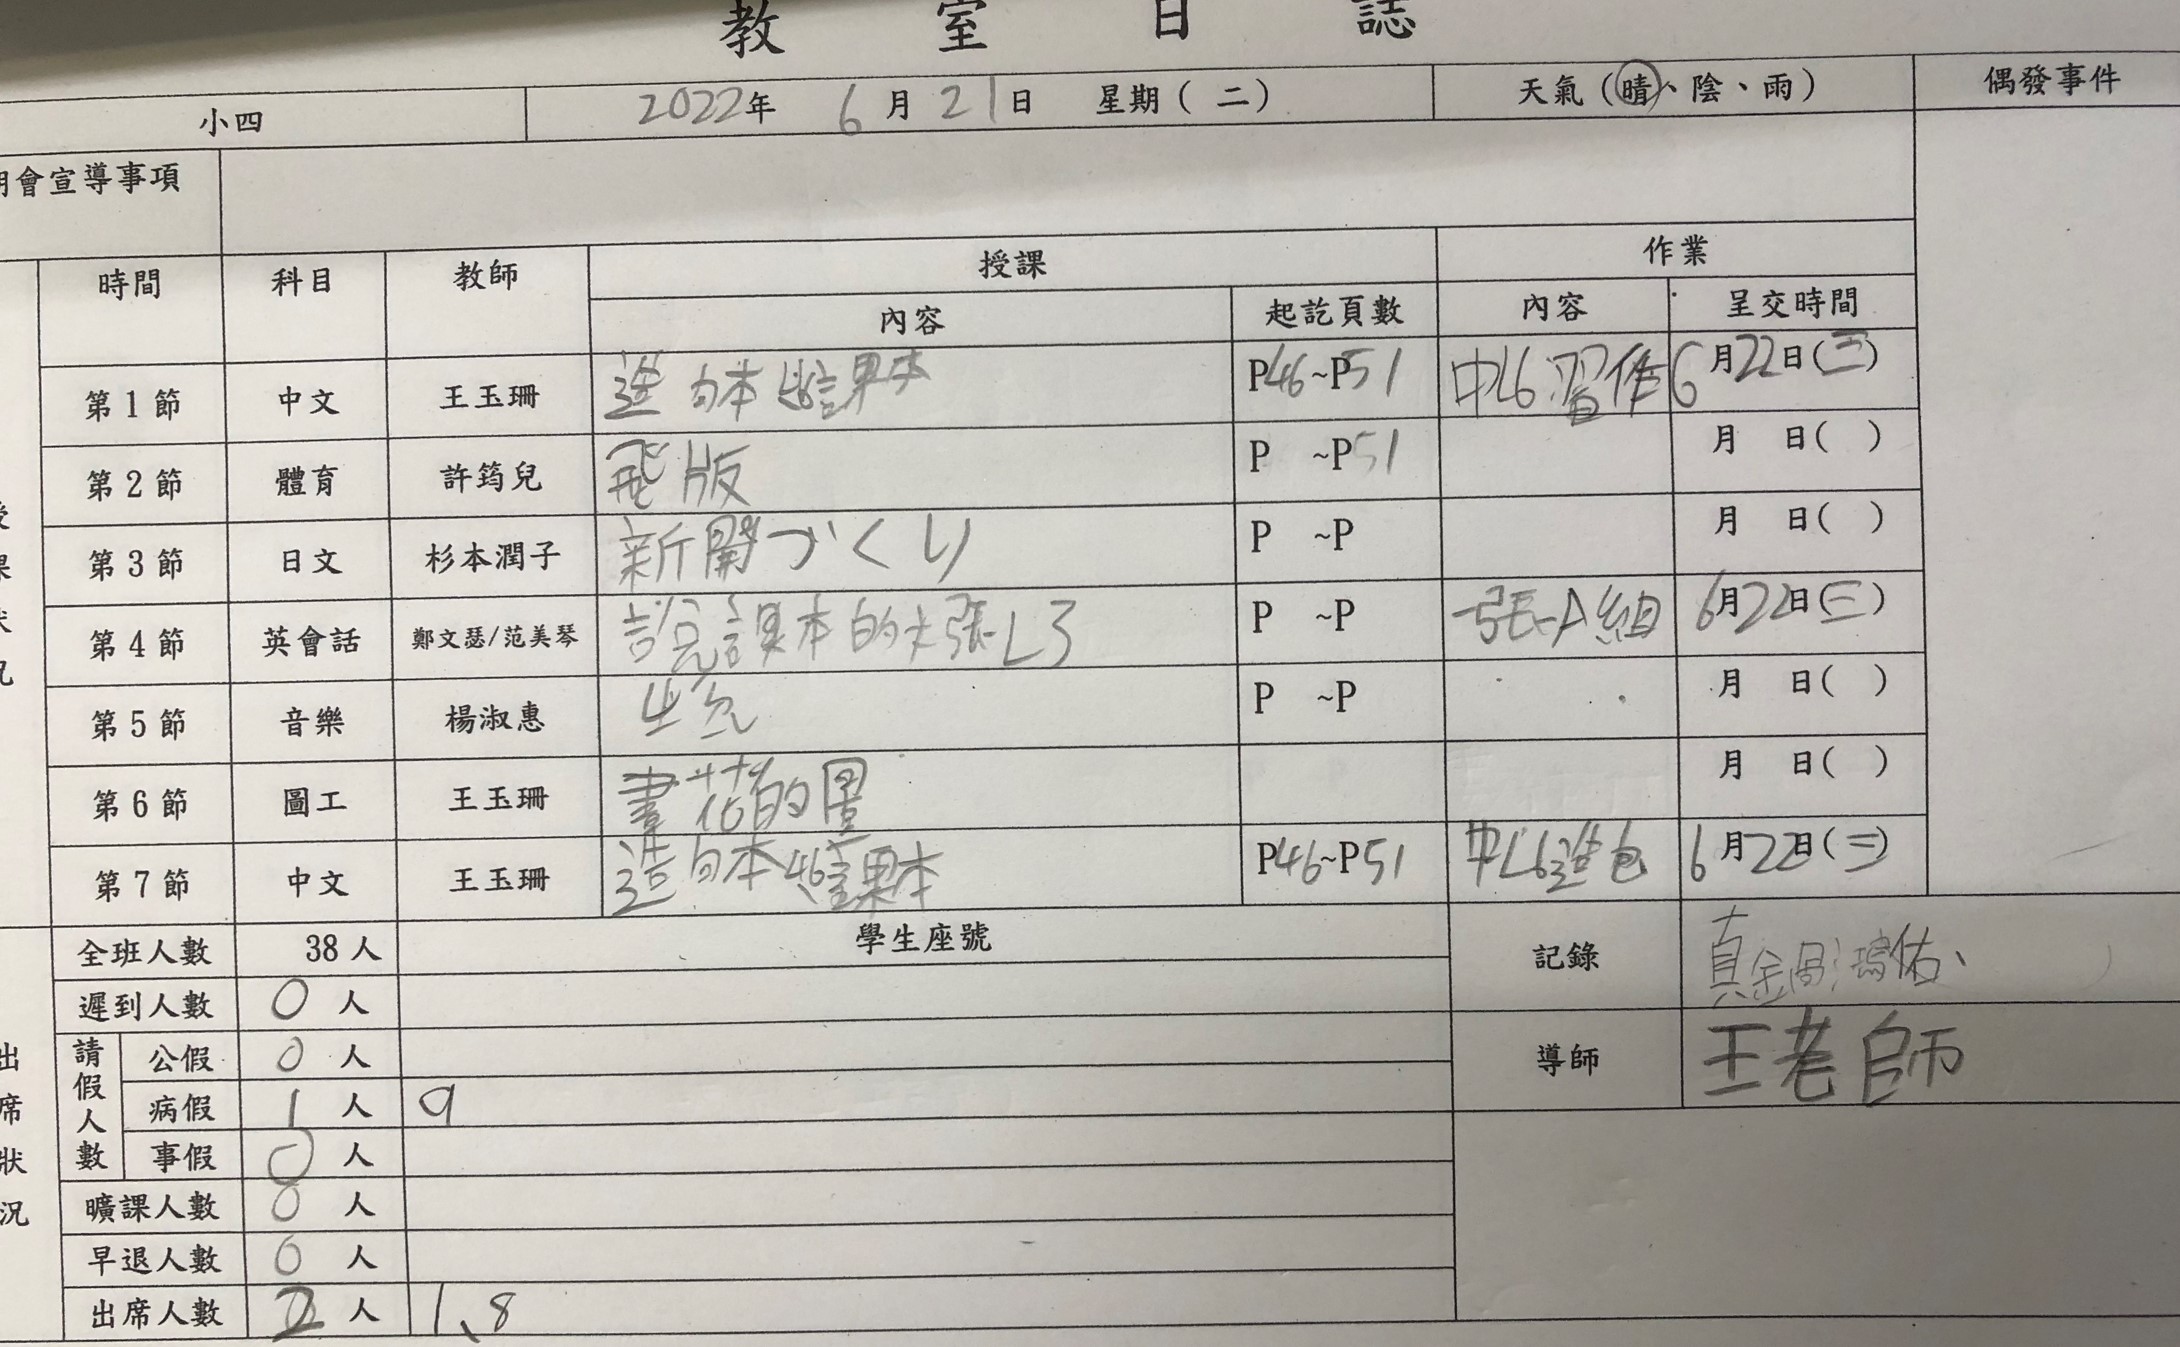 教室日誌
小四 2022年 6月21日 星期(二) 天氣(晴、陰、雨) 偶發事件
會宣導事項
時間 科目 教師 授課 作業
內容 起訖頁數 內容 呈交時間
第1節 中文 王玉珊 造句本 課本 P46~P51 中L6習作 6月22日(三)
第2節 體育 許筠兒 飛版 P ~P51 月 日( )
第3節 日文 杉本潤子 新聞づくり P ~P 月 日( )
第4節 英會話 鄭文瑟/范美琴 說課本的大張L3 P ~P 張A組 6月22日(三)
第5節 音樂 楊淑惠 P ~P 月 日( )
第6節 圖工 王玉珊 畫花的圖 月 日( )
第7節 中文 王玉珊 造句本 課本 P46~P51 中L6造句 6月22日(三)
全班人數 38人 學生座號 記錄
遲到人數 0人
請假人數 公假 0人 導師 王老師
病假 1人 9
事假 0人
曠課人數 0人
早退人數 0人
出席人數 2人 1、8
出席狀況